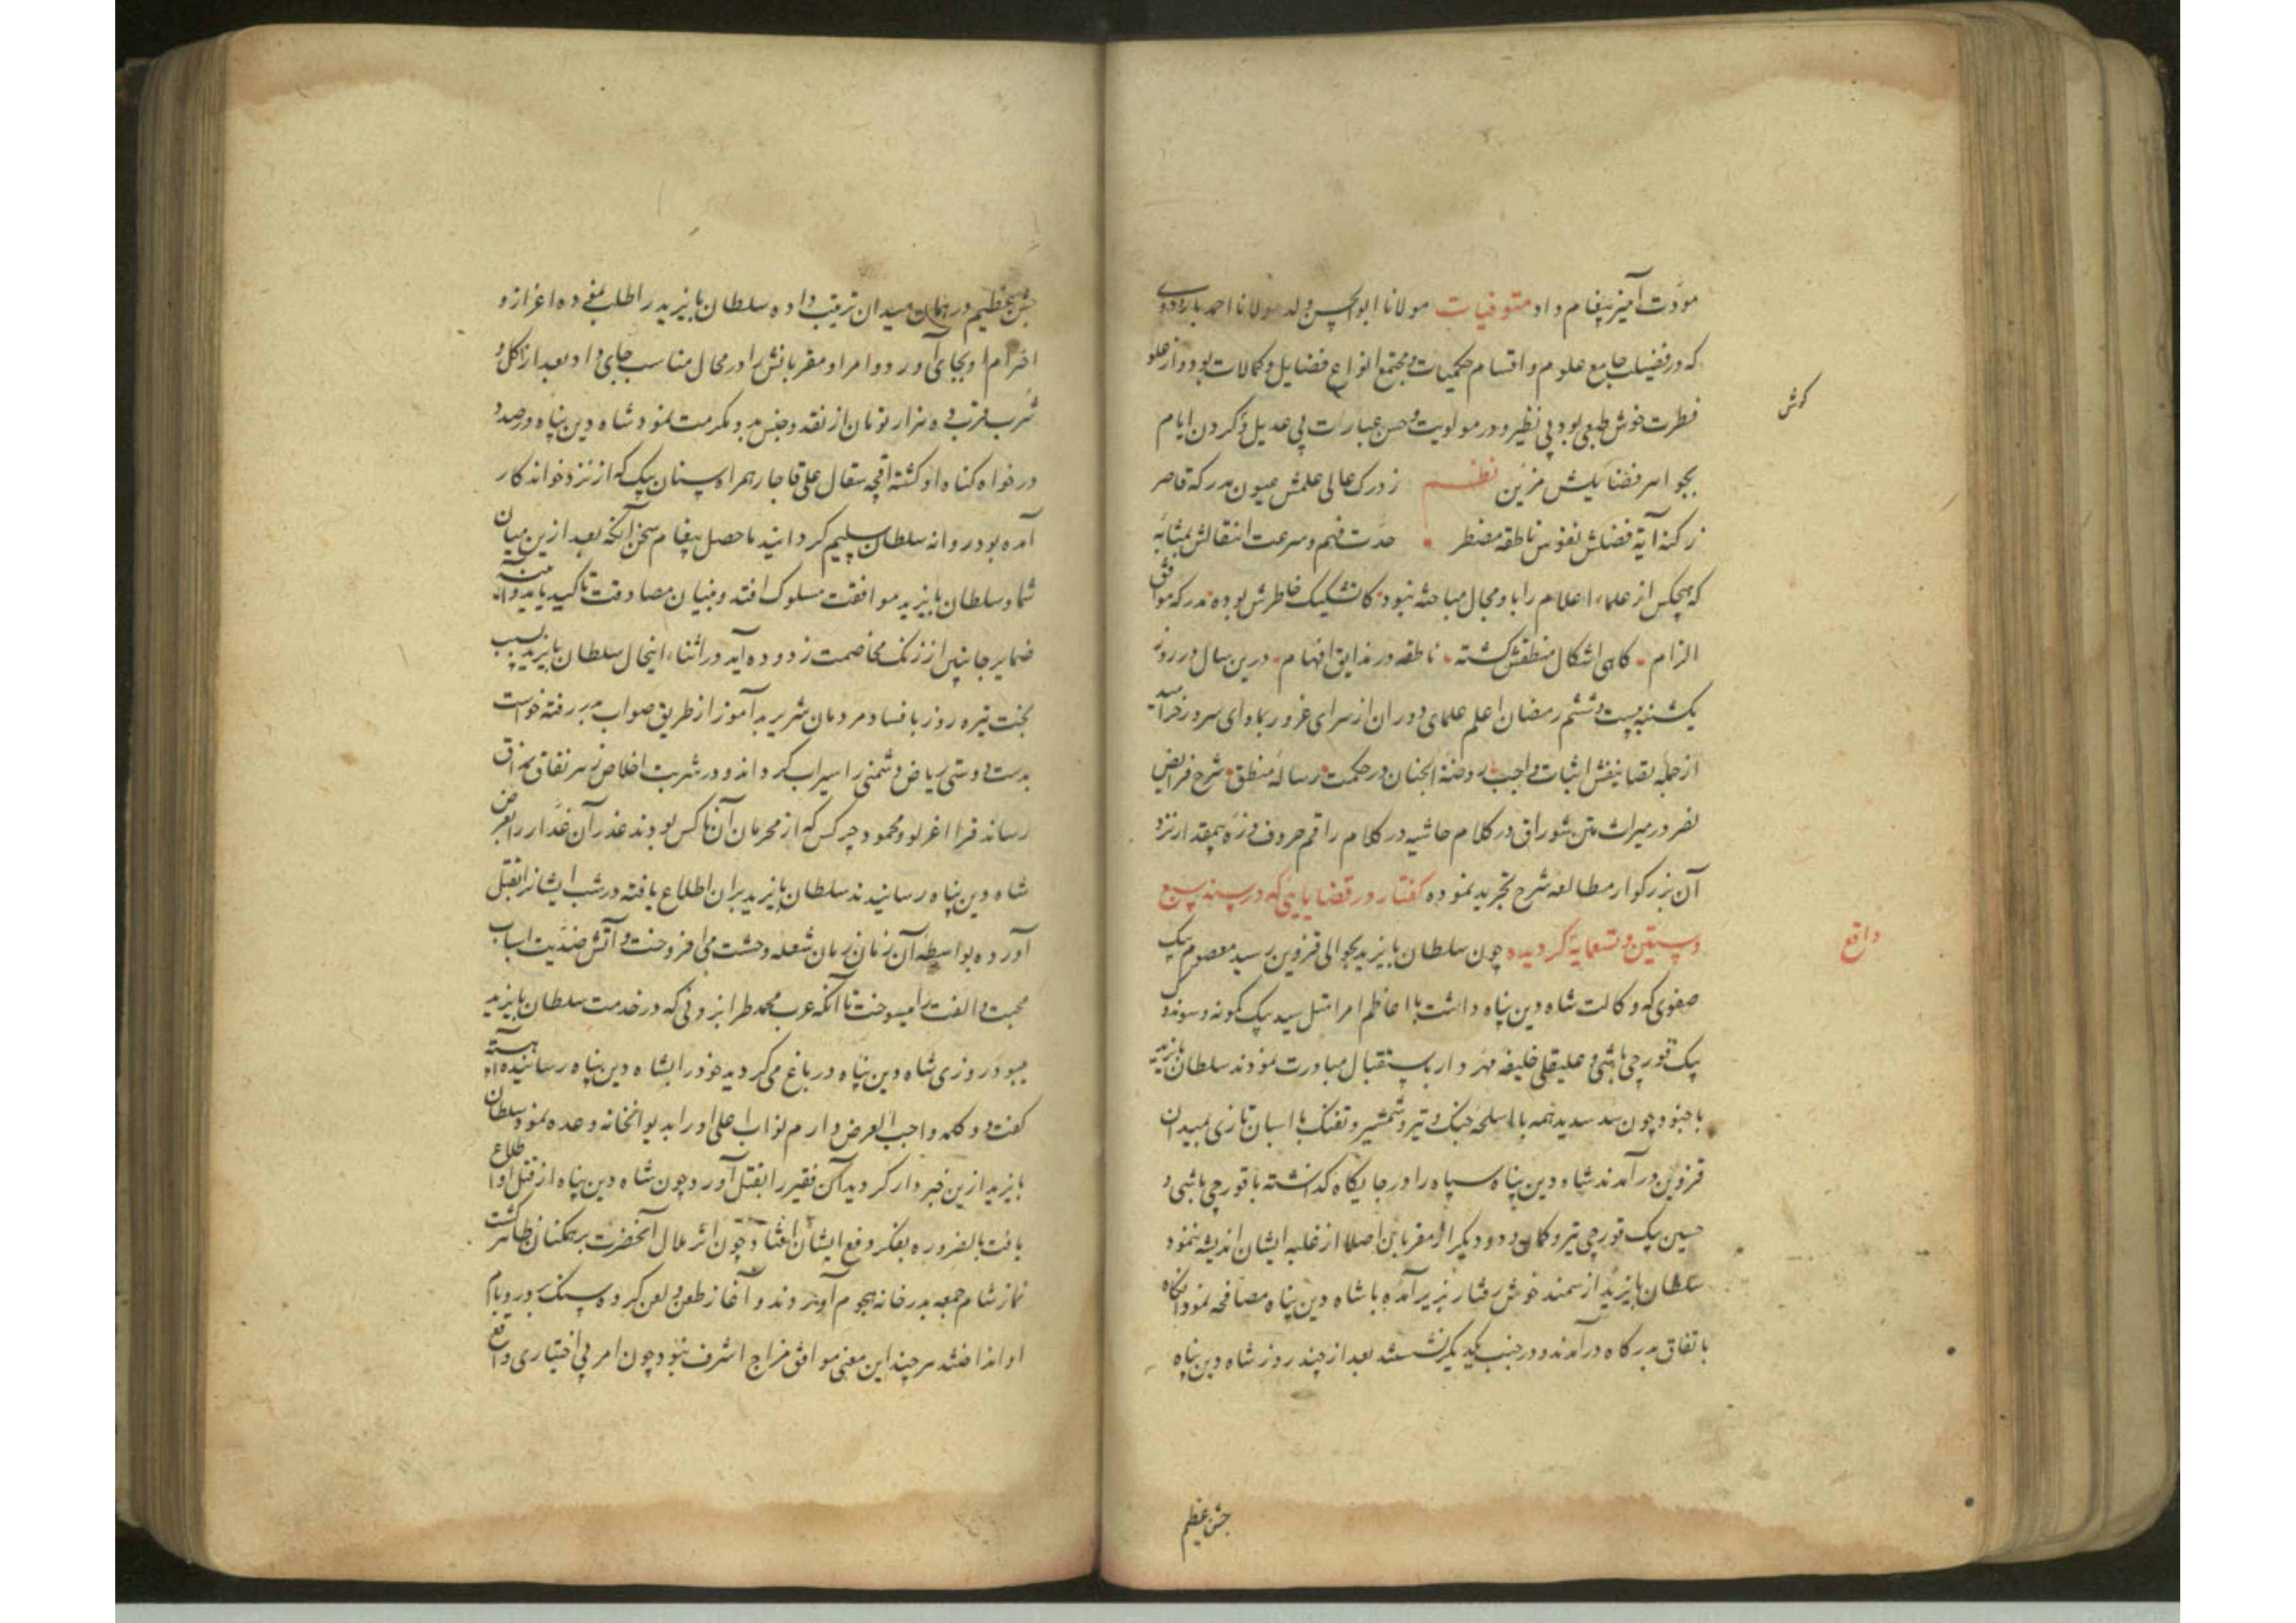 مودت آمیز پیغام داد متوفیات مولانا ابوالحسن ولد مولانا احمد باوردی
که در فضیلت جامع علوم و اقسام حکمیات و مجتمع انواع فضایل و کمالات بود و از علو
فطرت خوش طبعی بود بی نظیر و در مولویت و حسن عبارات بی عدیل کردن ایام
کوش
بجواهر فضایلش مزین نظم ز درک عالی علمش عیون مدرکه قاصر
ز کنه آیة فضلش نفوس ناطقه مضطر حدت فهم و سرعت انتقالش بمثابه
که هیچکس از علماء اعلام را با او مجال مباحثه نبود کا تشکیک خاطرش بوده مدرکه موافق
الزام کاهی اشکال منطقش کشته ناطقه در مذایق افهام درین سال در روز
یکشنبه بیست و ششم رمضان اعلم علمای دوران از سرای غرور بماوای سرور خرامید
از جمله تصانیفش اثبات واجب روضة الجنان در حکمت رسالۀ منطق شرح فرایض
نصر در میراث متن شوراق در کلام حاشیه در کلام راقم حروف ذره بیمقدار نزد
آن بزرکوار مطالعۀ شرح تجرید نموده کفتار در قضایایی که در سنه سبع
و ستین و تسعمایه کردیده چون سلطان بایزید بحوالی قزوین رسید معصوم بیک
واقع
صفوی که وکالت شاه دین پناه داشت با اعاظم امرا مثل سید بیک کمونه و سوندوک
بیک قورچی باشی و علیقلی خلیفه مهردار باستقبال مبادرت نمودند سلطان بایزید
با جنود چون سد سدید همه با اسلحه جنک و تیر و شمشیر و تفنک با اسبان تازی بمیدان
قزوین در آمدند شاه دین پناه سپاه را در جایکاه کذاشته با قورچی باشی و
حسین بیک قورچی تیر و کمان و دو دیکر از مقربان اصلا از غلبه ایشان اندیشه ننمود
سلطان بایزید از سمند خوش رفتار بزیر آمده با شاه دین پناه مصافحه نمود آنکاه
باتفاق بدرکاه درآمدند و در جنب یکدیکر نشستند بعد از چند روز شاه دین پناه
جشن عظیم
جشن عظیم در همان میدان ترتیب داده سلطان بایزید را طلب نموده اعزاز و
احترام او بجای آورد و امرا و مقربانش را در محال مناسب جای داد بعد از اکل و
شرب قرب ده هزار تومان از نقد و جنس بدو مکرمت نمود شاه دین پناه در صدد
درخواه کناه او کشته اقچه سقال علی قاجار همراه سنان بیک که از نزد خواندکار
آمده بود روانه سلطان سلیم کردانید ماحصل پیغام سخن آنکه بعد ازین میان
شما و سلطان بایزید موافقت مسلوک افتد و بنیان مصادقت تاکید یابد و آینه
ضمایر جانبین از زنک مخاصمت زدوده آید در اثناء اینحال سلطان بایزید بسبب
بخت تیره روز بافساد مردمان شریر بدآموز از طریق صواب بدر رفته خواست
بدست دوستی ریاض دشمنی را سیراب کرداند و در شربت اخلاص زهر نفاق بمذاق
رساند قرا اغرلو و محمود چرکس که از محرمان آن ناکس بودند غدر آن غدار را بعرض
شاه دین پناه رسانیدند سلطان بایزید بران اطلاع یافته در شب ایشانرا بقتل
آورده بواسطۀ آن زمان زمان شعله وحشت می افروخت و آتش ضدیت اسباب
محبت و الفت را میسوخت تا آنکه عرب محمد طرابزونی که در خدمت سلطان بایزید
میبود روزی شاه دین پناه در باغ می کردید خود را بشاه دین پناه رسانیده آهسته
کفت دو کلمه واجب العرض دارم نواب اعلی او را بدیوانخانه وعده نمود سلطان
بایزید ازین خبردار کردید آن فقیر را بقتل آورد چون شاه دین پناه از قتل او اطلاع
یافت بالضروره بفکر دفع ایشان افتاد و چون اثر ملال آنحضرت بر همکنان ظاهر کشت
نماز شام جمعه بدر خانه هجوم آوردند و آغاز طعن و لعن کرده سنک بر در و بام
او انداختند هر چند این معنی موافق مزاج اشرف نبود چون امر بی اختیاری واقع